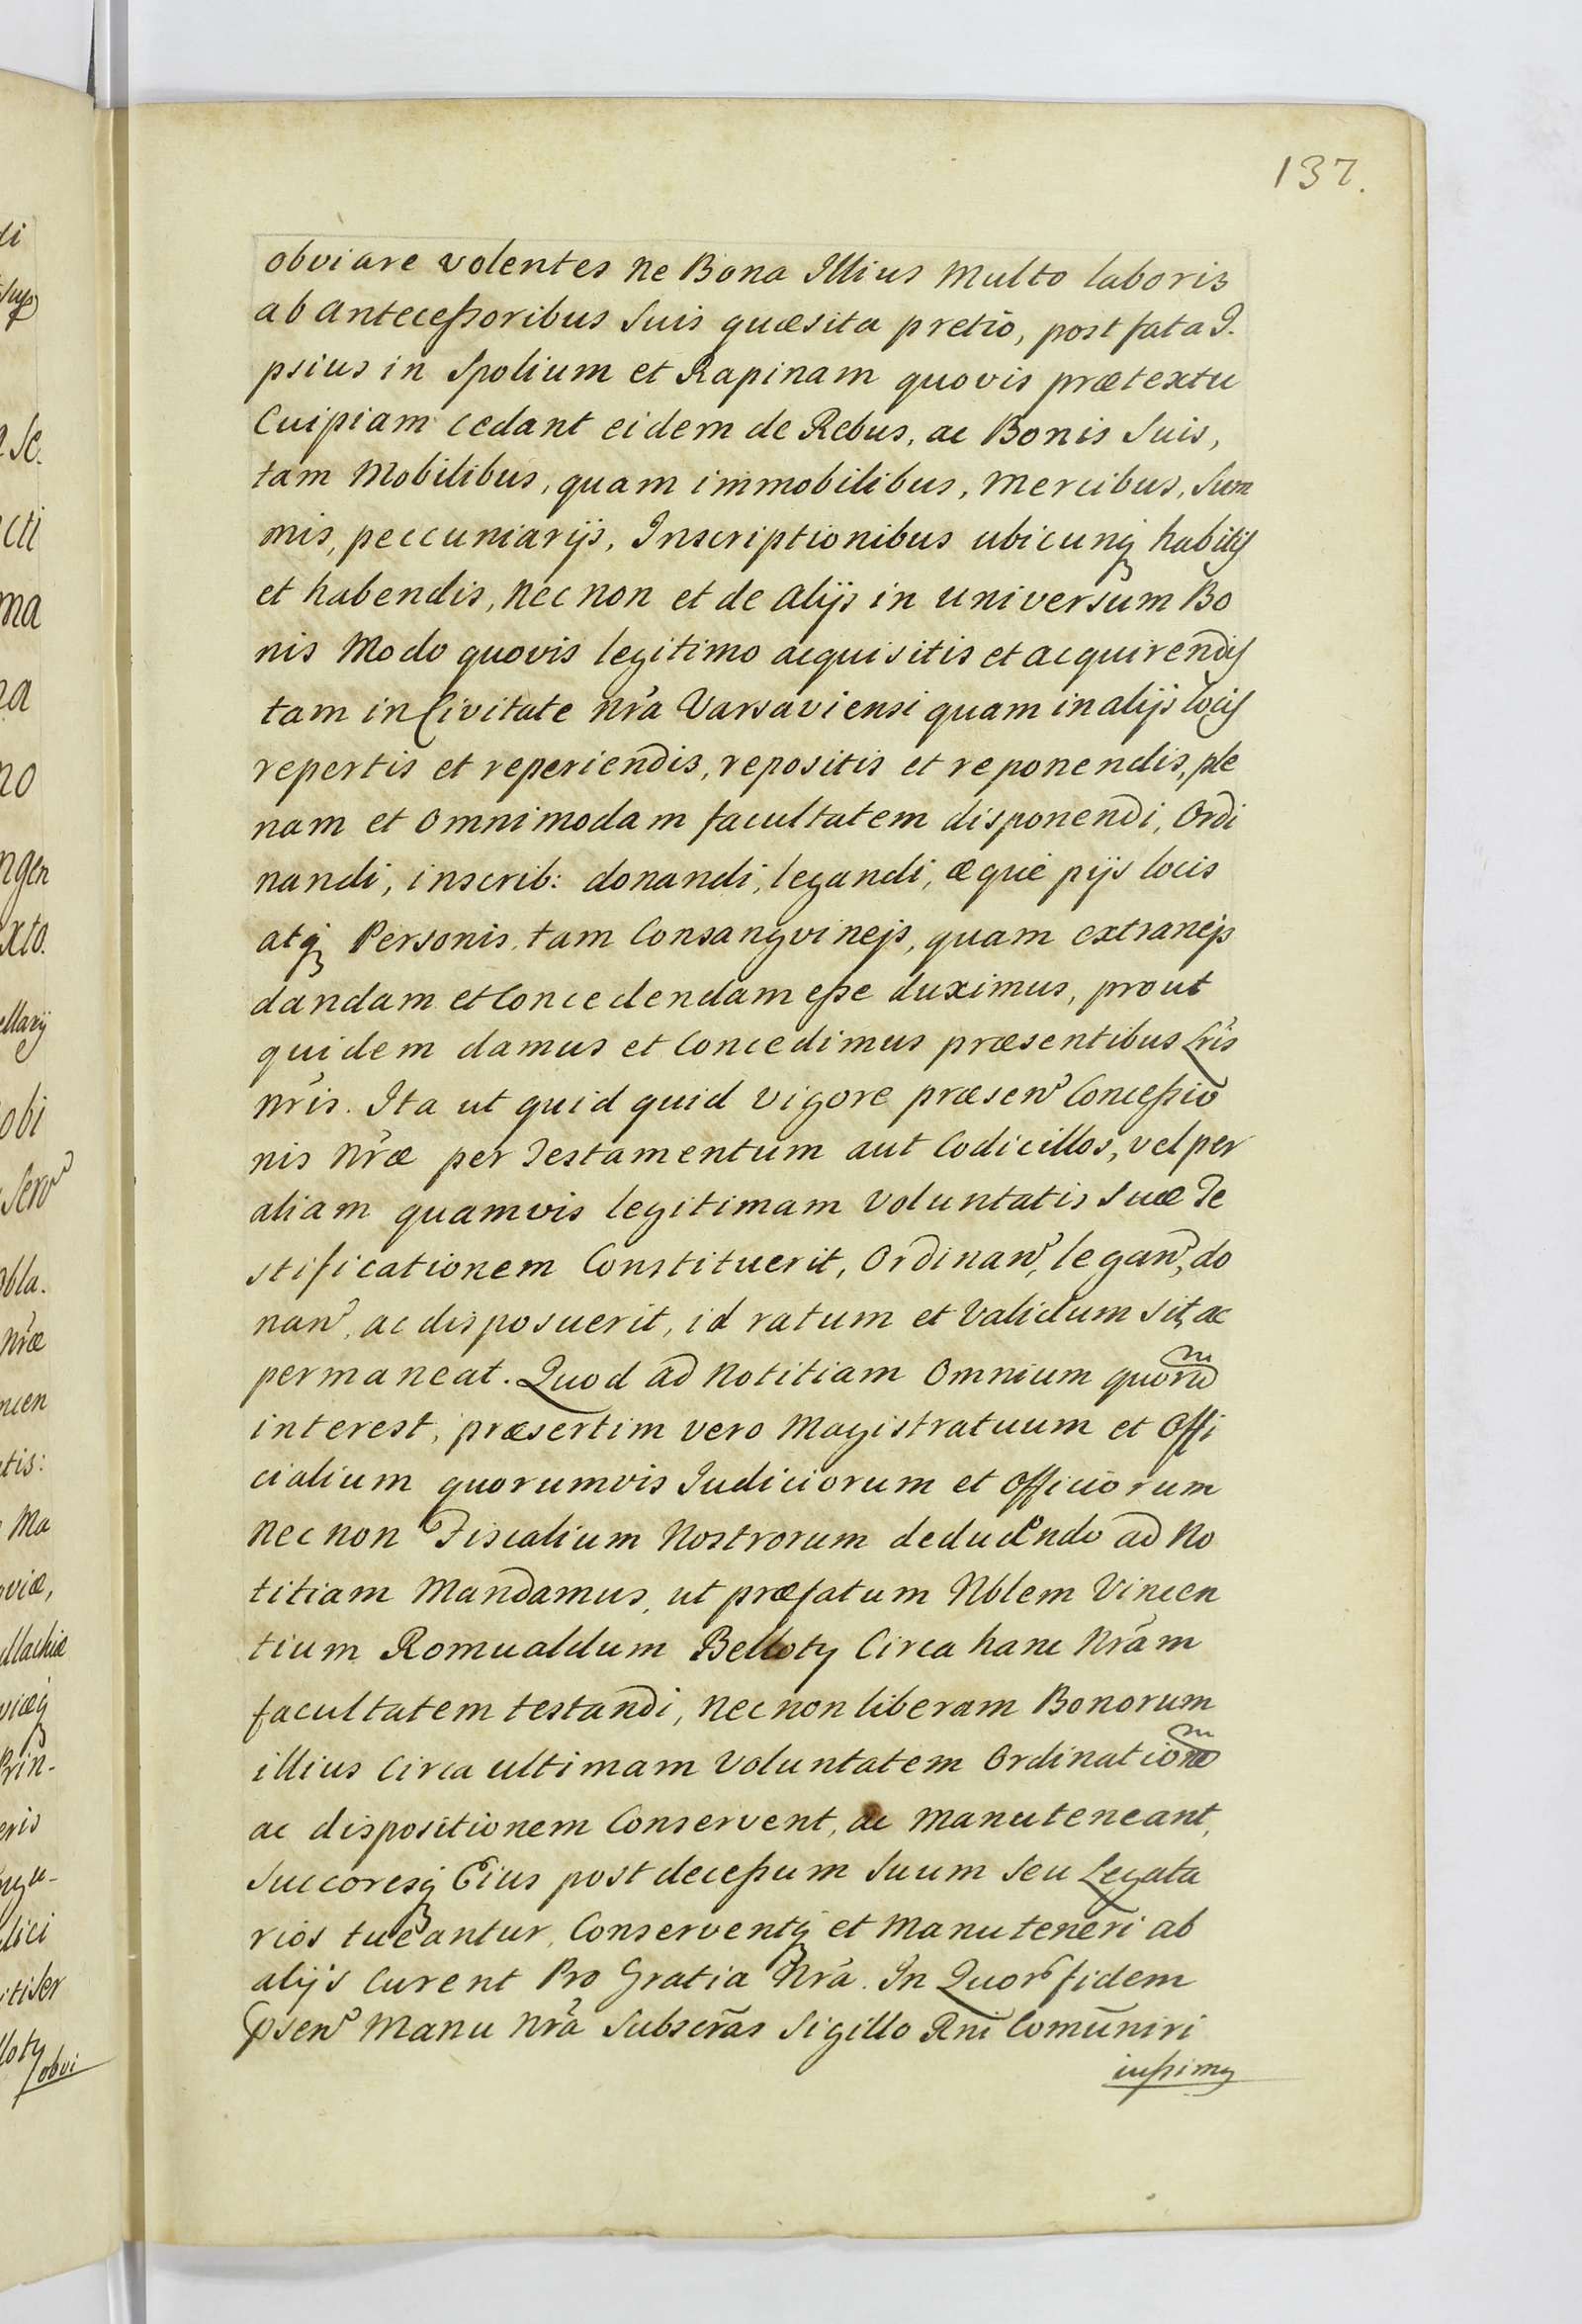 137.
obviare volentes ne Bona Illius Multo laboris
ab antecessoribus suis quæsita pretio, post fata I.
psius in Spolium et Rapinam quovis prætextu
Cuipiam cedant eidem de Rebus, ac Bonis Suis,
tam Mobilibus, quam immobilibus, Mercibus, Sum
mis, peccuniarijs, Inscriptionibus ubicunq habitis
et habendis, nec non et de alijs in universum Bo
nis Modo quovis legitimo acquisitis et acquirendis
tam in Civitate nrã Varsaviensi quam in alijs locis
repertis et reperiendis, repositis et reponendis, ple
nam et omnimodam facultatem disponendi, Ordi
nandi, inscrib: donandi, legandi, æque pijs locis
atq Personis tam Consangvinejs, quam extranejs
dandam et Concedendam esse duximus, prout
quidem damus et Concedimus præsentibus Lris
nris. Ita ut quid quid vigore præsen Concessio
nis nræ per Testamentum aut Codicillos, vel per
aliam quamvis legitimam voluntatis suæ Te
stificationem Constituerit, Ordinav, legav, do
nav, ac disposuerit, id ratum et validum sit, ac
permaneat. Quod ad Notitiam Omnium quorum
interest, præsertim vero Magistratuum et Offi
cialium quorumvis Iudiciorum et Officiorum
nec non Fiscalium Nostrorum deducendo ad No
titiam Mandamus, ut præfatum Nblem Vincen
tium Romualdum Belloty Circa hanc Nrãm
facultatem testandi, nec non liberam Bonorum
illius Circa ultimam Voluntatem Ordinationem
ac dispositionem Conservent, ac manuteneant,
Succoresq Eius post decessum suum seu Legata
rios tueantur, Conserventq et Manuteneri ab
alijs Curent Pro Gratia Nrã. In Quor fidem
psen Manu Nrã Subscrãs Sigillo Rni Comũniri
iussimq
obvi